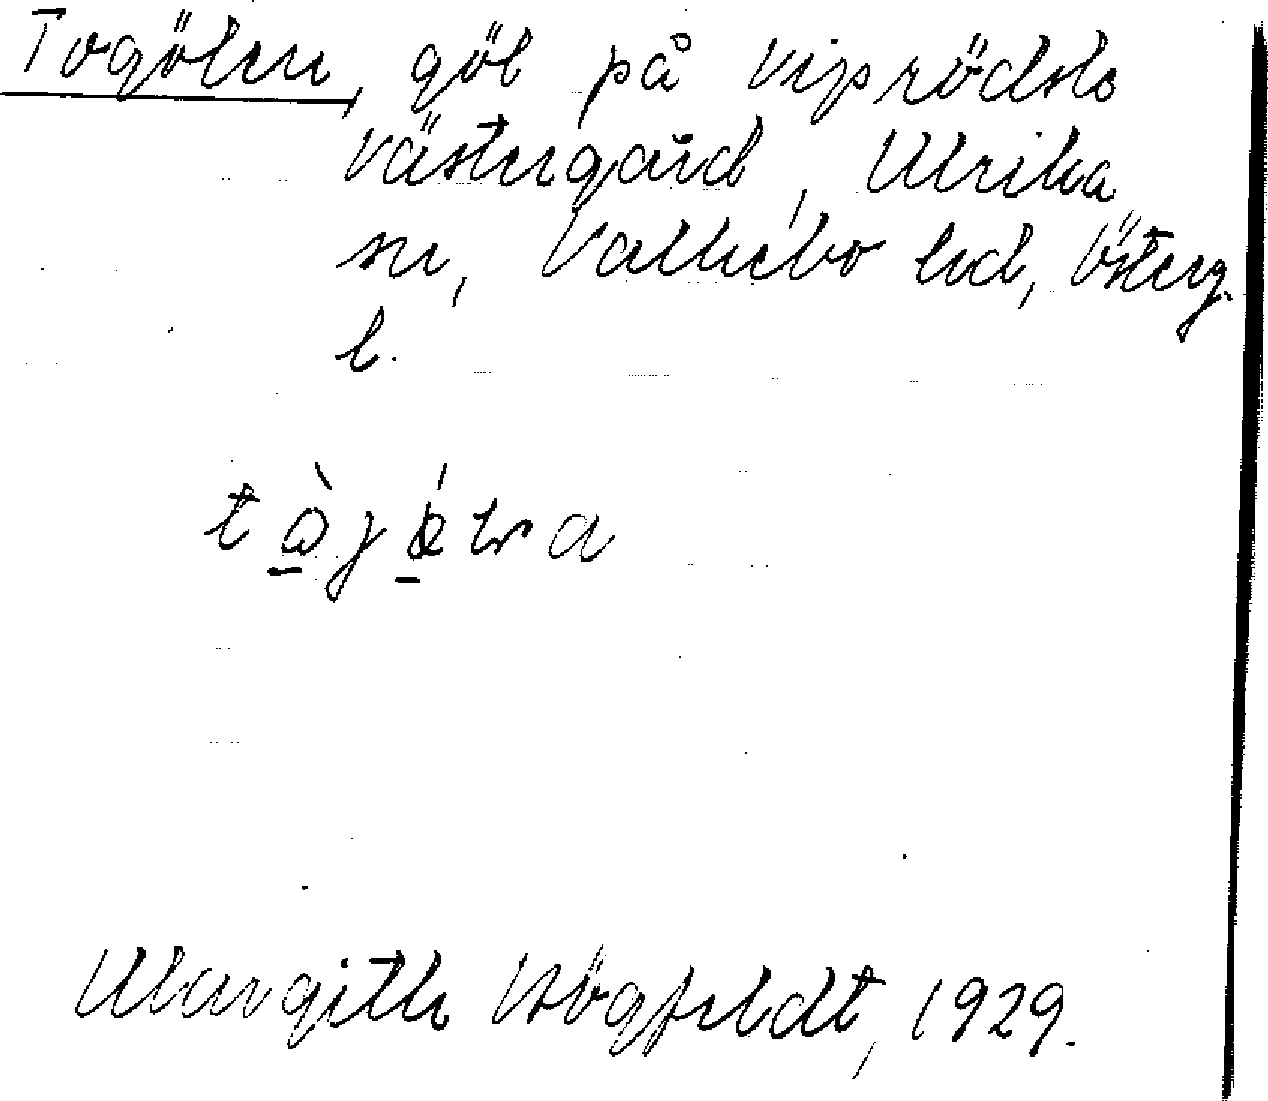 Togölen, göl på Viprödsle
Västergård, Ulrika
sn, Valkebo hd, Österg.
l.
Margith Högfeldt, 1929.